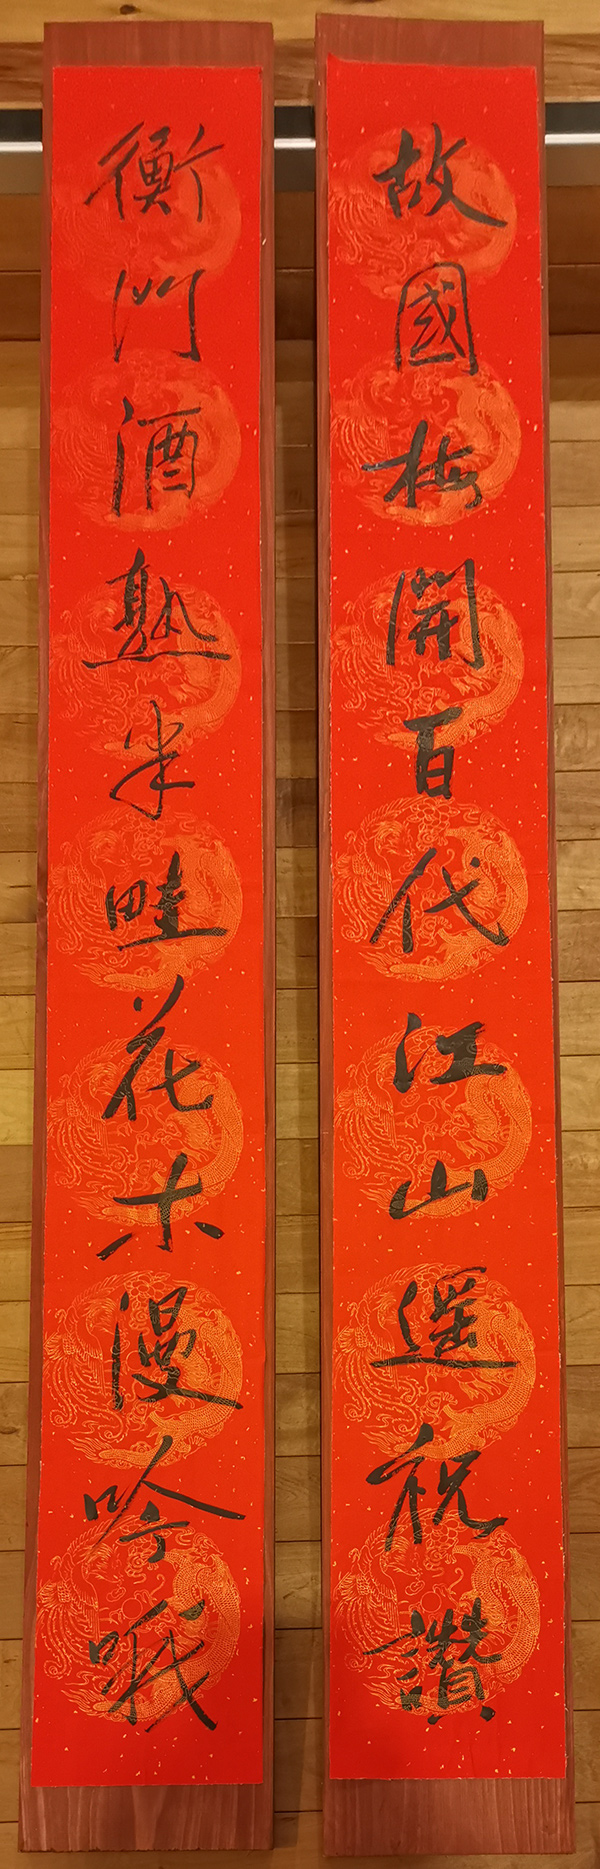 故國梅開百代江山遥祝讚
衡門酒熟半畦花木漫吟哦